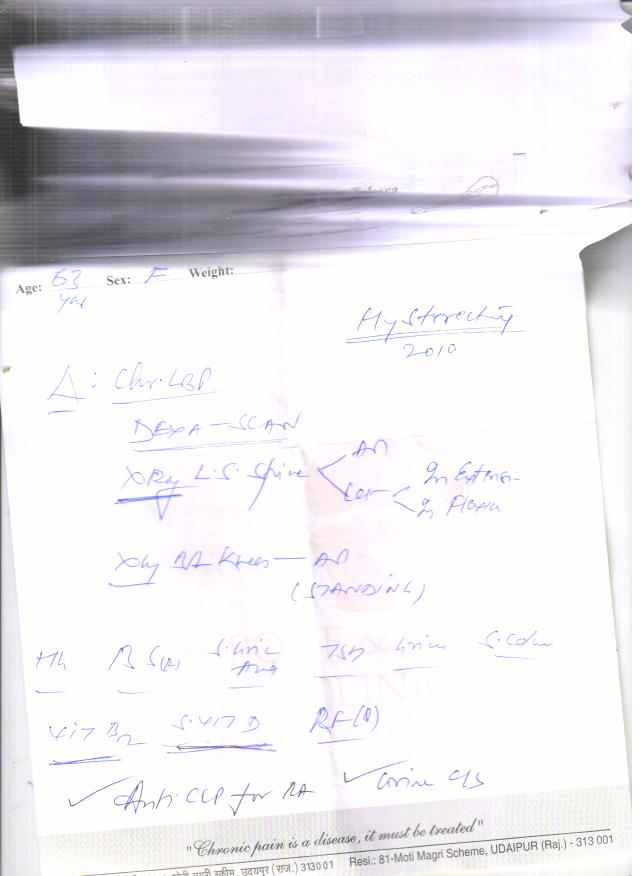 Age: 63 Sex: F Weight:
Hysterectomy
2010
Δ: Chr. LBP
DEXA-SCAN
XRay L.S. Spine AP
Lat In Extension
In Flexion
XRay B/L Knees — AP
(STANDING)
Hb B S(R) S. Uric Acid TSH Urine
Vit B12 S. Vit D RF(Q)
✓ Anti CCP for RA ✓ Urine C/S
"Chronic pain is a disease, it must be treated"
उदयपुर (राज.) 313001 Resi.: 81-Moti Magri Scheme, UDAIPUR (Raj.) - 313 001